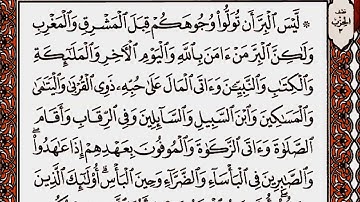 ۞ لَّيْسَ ٱلْبِرَّ أَن تُوَلُّوا۟ وُجُوهَكُمْ قِبَلَ ٱلْمَشْرِقِ وَٱلْمَغْرِبِ
وَلَٰكِنَّ ٱلْبِرَّ مَنْ ءَامَنَ بِٱللَّهِ وَٱلْيَوْمِ ٱلْءَاخِرِ وَٱلْمَلَٰٓئِكَةِ
وَٱلْكِتَٰبِ وَٱلنَّبِيِّـۧنَ وَءَاتَى ٱلْمَالَ عَلَىٰ حُبِّهِۦ ذَوِى ٱلْقُرْبَىٰ وَٱلْيَتَٰمَىٰ
وَٱلْمَسَٰكِينَ وَٱبْنَ ٱلسَّبِيلِ وَٱلسَّآئِلِينَ وَفِى ٱلرِّقَابِ وَأَقَامَ
ٱلصَّلَوٰةَ وَءَاتَى ٱلزَّكَوٰةَ وَٱلْمُوفُونَ بِعَهْدِهِمْ إِذَا عَٰهَدُوا۟ ۖ
وَٱلصَّٰبِرِينَ فِى ٱلْبَأْسَآءِ وَٱلضَّرَّآءِ وَحِينَ ٱلْبَأْسِ ۗ أُو۟لَٰٓئِكَ ٱلَّذِينَ
نصف
الحزب
٣